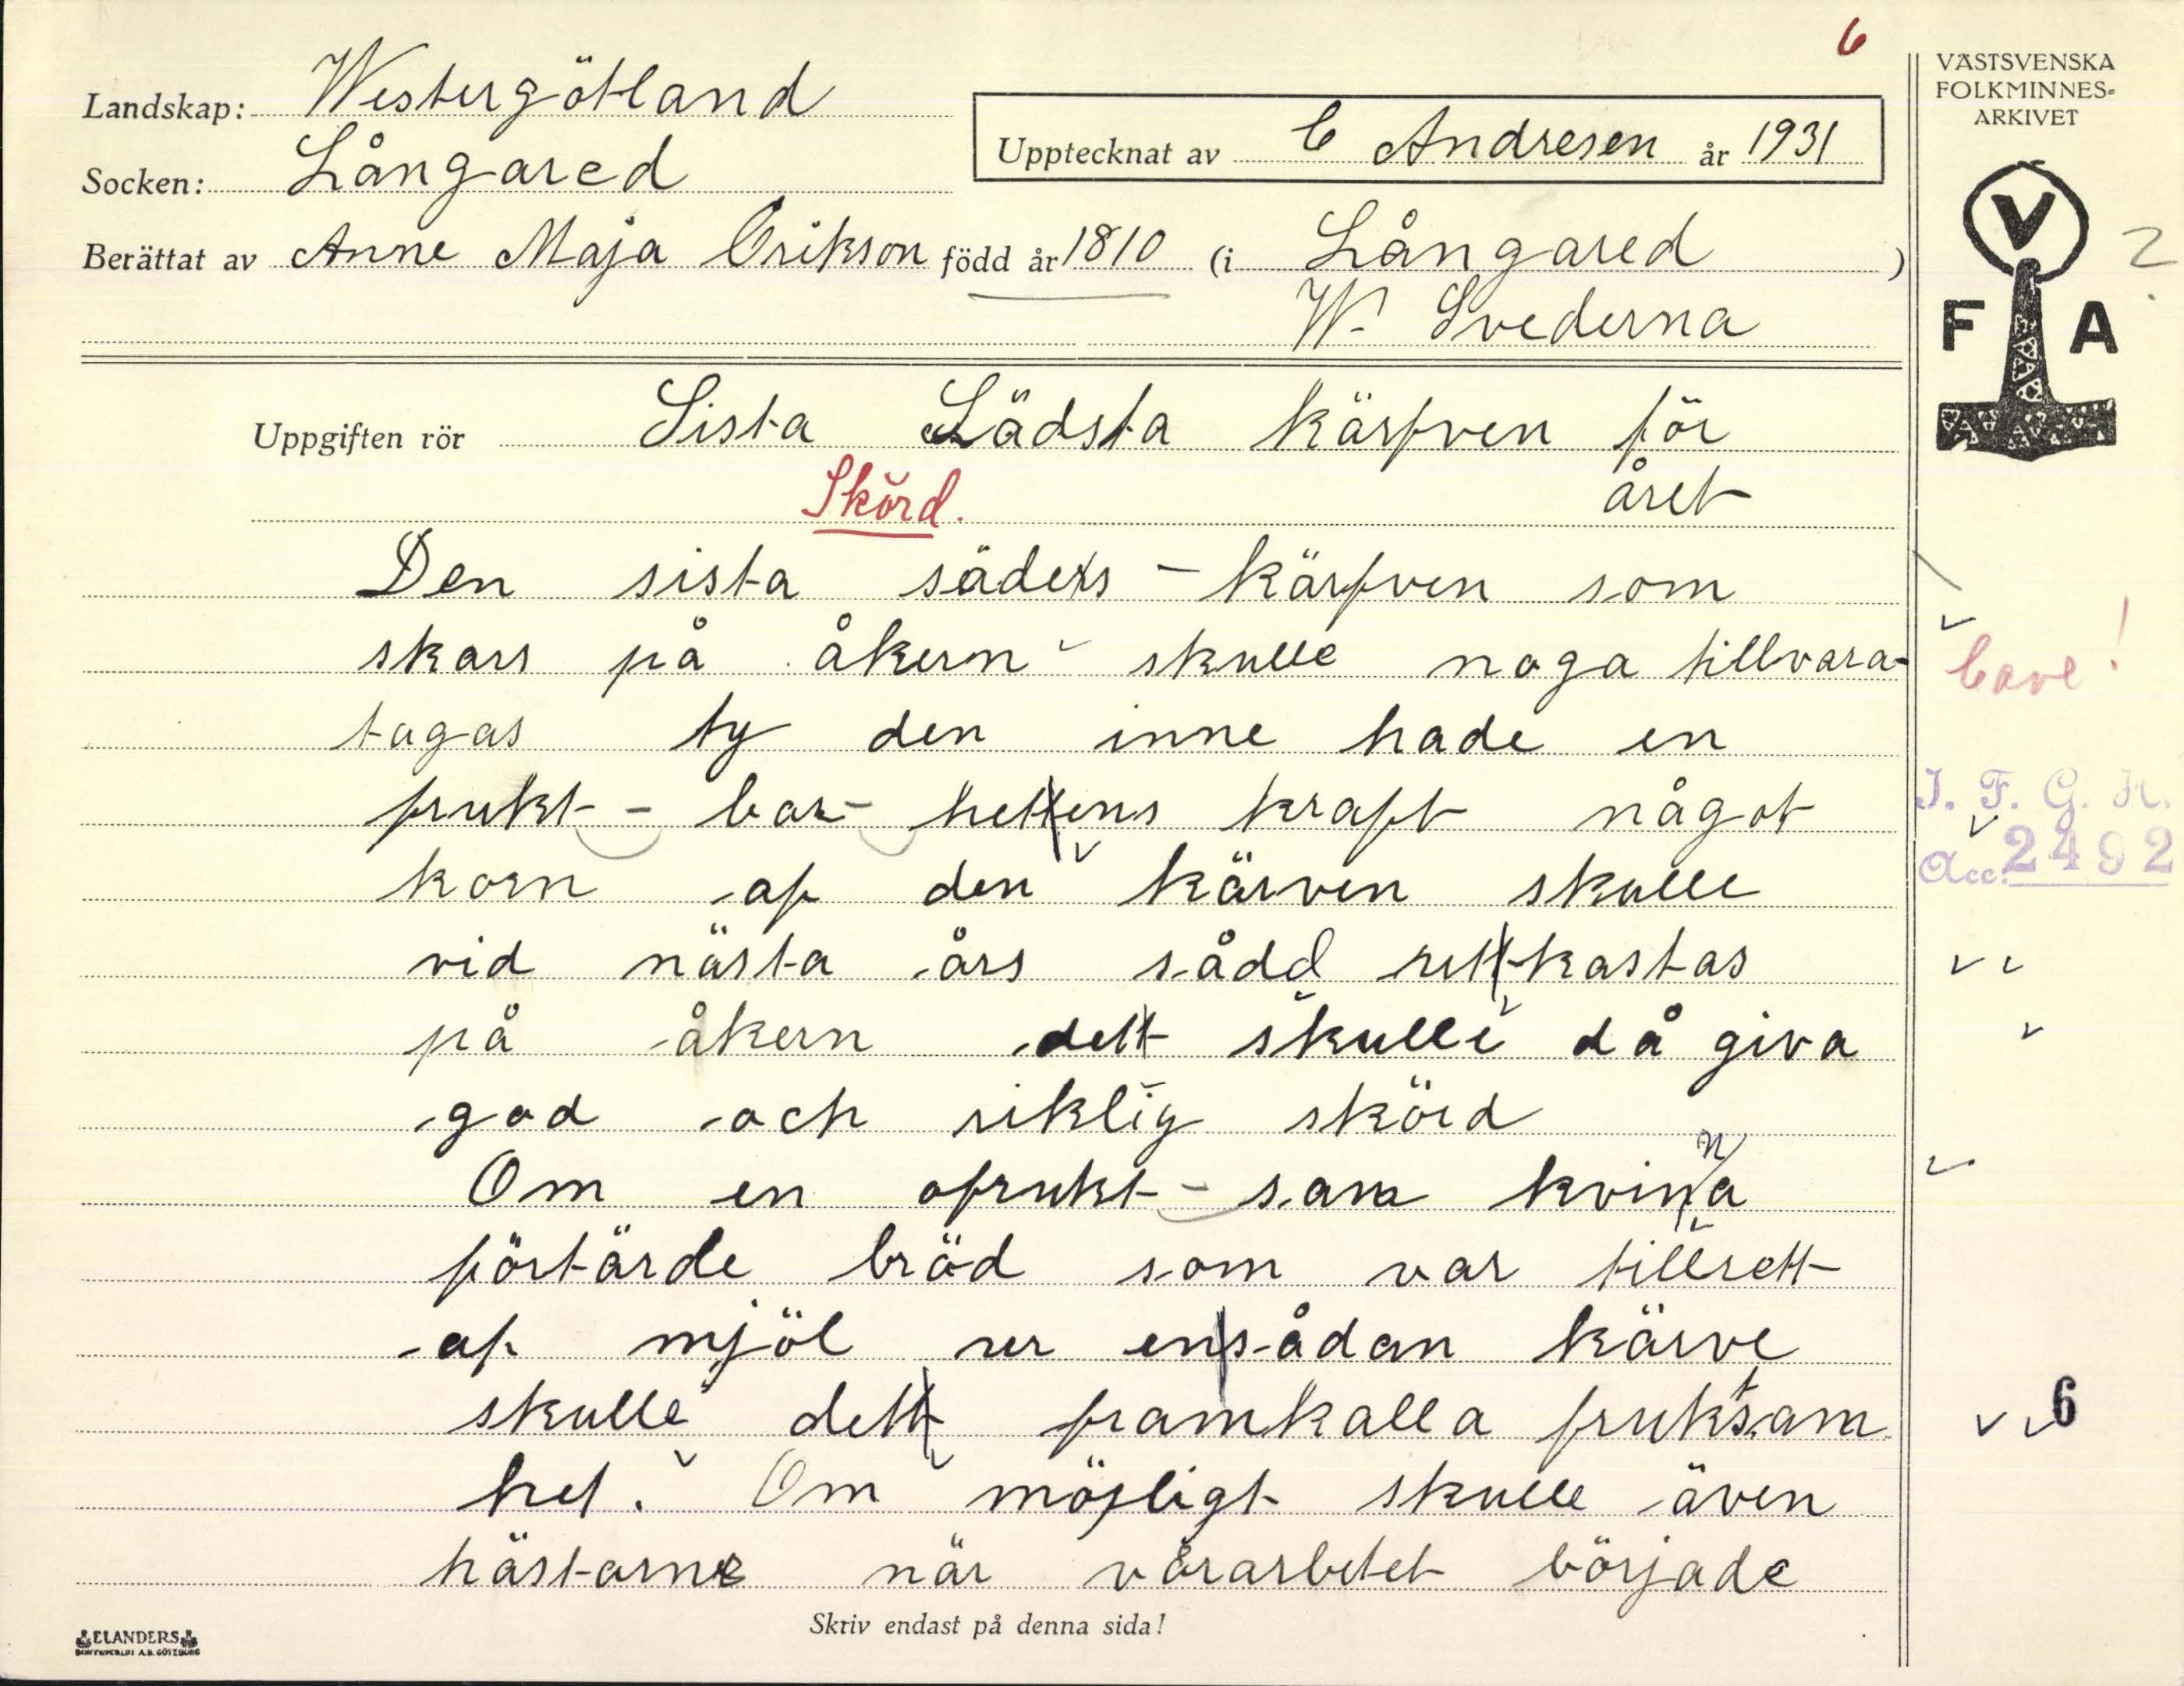 6
Landskap: Westergötland
Socken: Långared
Upptecknat av C Andresen år 1931
Berättat av Anne Maja Erikson född år 1810 (i Långared )
W. Svederna
VÄSTSVENSKA
FOLKMINNES-
ARKIVET
V
F A
2
Uppgiften rör Sista Lädsta kärfven för
året
Skörd.
Den sista säders - kärfven som
skars på åkern skulle noga tillvara-
tagas ty den inne hade en
frukt - bar- hettens kraft något
korn af den kärven skulle
vid nästa års sådd utt kastas
på åkern dett skulle då giva
god och riklig skörd
Om en ofrukt - sam kvinna
förtärde bröd som var tillrett
af mjöl ur en sådan kärve
skulle dett framkalla fruktsam
het. Om möjligt skulle även
hästarne när vårarbetet började
Cave!
I. F. G. H.
Acc. 2492
6
Skriv endast på denna sida!
ELANDERS
BOKTRYCKERI A.B. GÖTEBORG